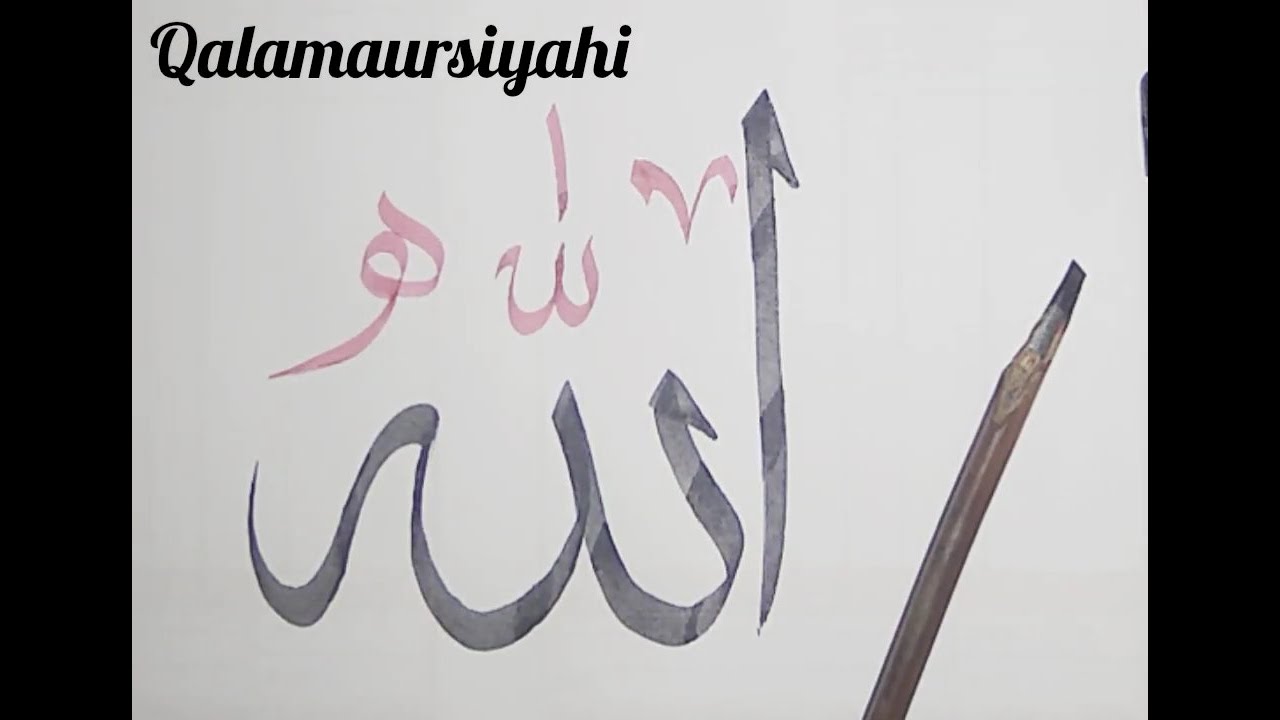 Qalamaursiyahi
الله